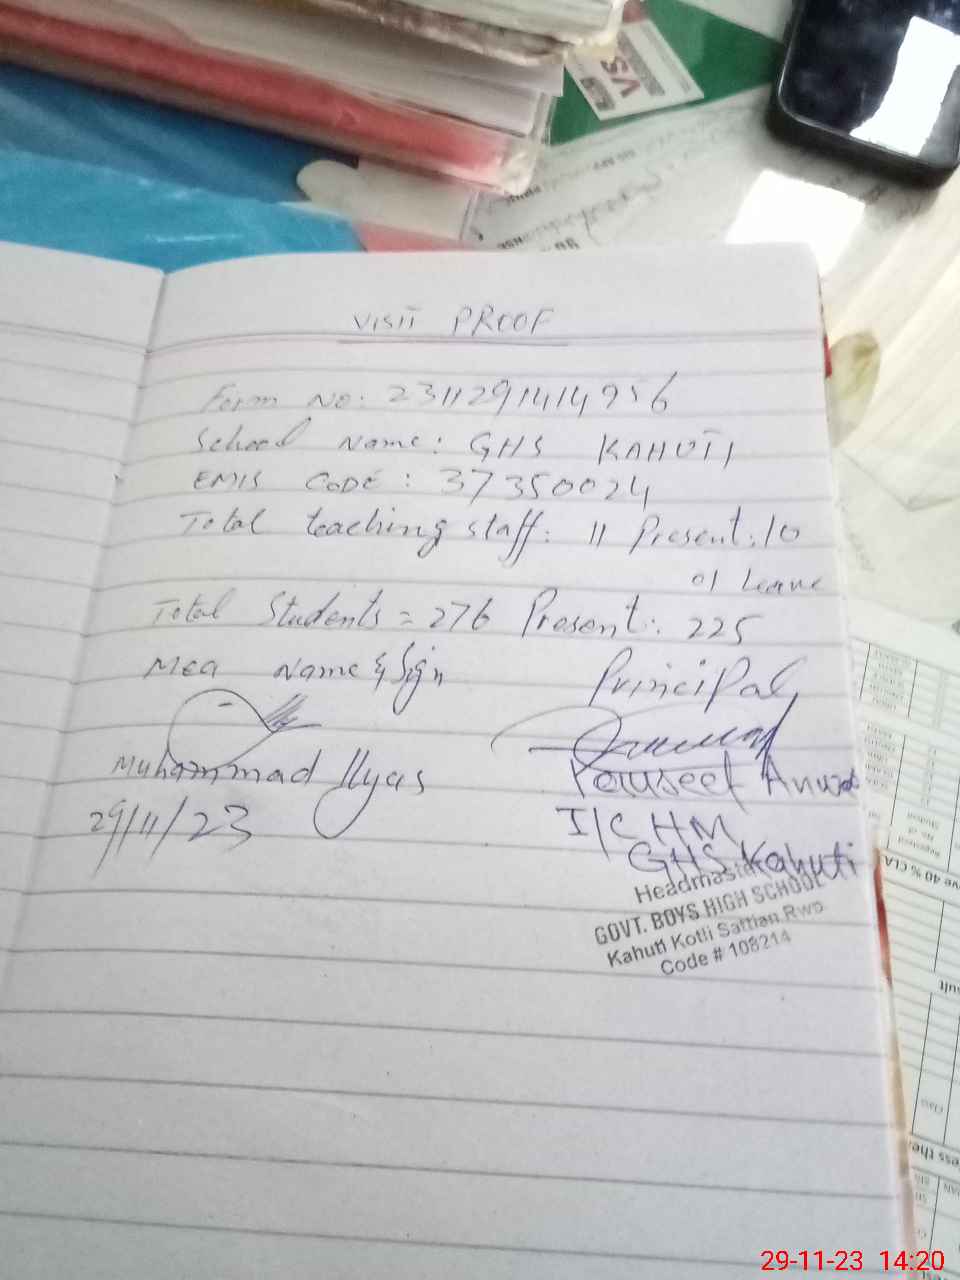 VISIT PROOF
Form No: 2311291414956
School Name: GHS KAHUTI
EMIS CODE: 37350024
Total teaching staff: 11 Present: 10
01 Leave
Total Students = 276 Present: 225
MEA Name & Sign Principal
Muhammad Ilyas
29/11/23
Anwar
I/C HM
GHS Kahuti
Headmaster
GOVT. BOYS HIGH SCHOOL
Kahuti Kotli Sattian Rwp
Code # 108214
VS
29-11-23 14:20